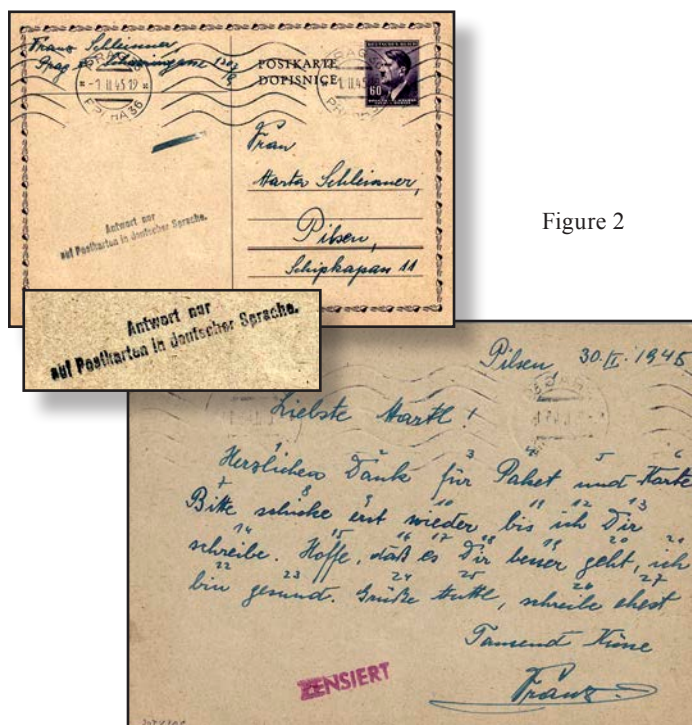 Franz Schleissner
Prag
PRAG 36
-1. II 45 19
PRAHA 36
POSTKARTE
DOPISNICE
PRAG 36
-1. II 45 19
PRAHA 36
DEUTSCHES REICH
60
Frau
Marta Schleissner,
Pilsen,
Schipkapass 11
Antwort nur
auf Postkarten in deutscher Sprache.
Figure 2
Antwort nur
auf Postkarten in deutscher Sprache.
Pilsen, 30. II. 1945
Liebste Martl!
1 2 3 4 5 6
Herzlichen Dank für Paket und Karte
7 8 9 10 11 12 13
Bitte schicke erst wieder bis ich Dir
14 15 16 17 18 19 20 21
schreibe. Hoffe, daß es Dir besser geht, ich
22 23 24 25 26 27
bin gesund. Grüße Muttl, schreibe ehest
Tausend Küsse
Franz.
ZENSIERT